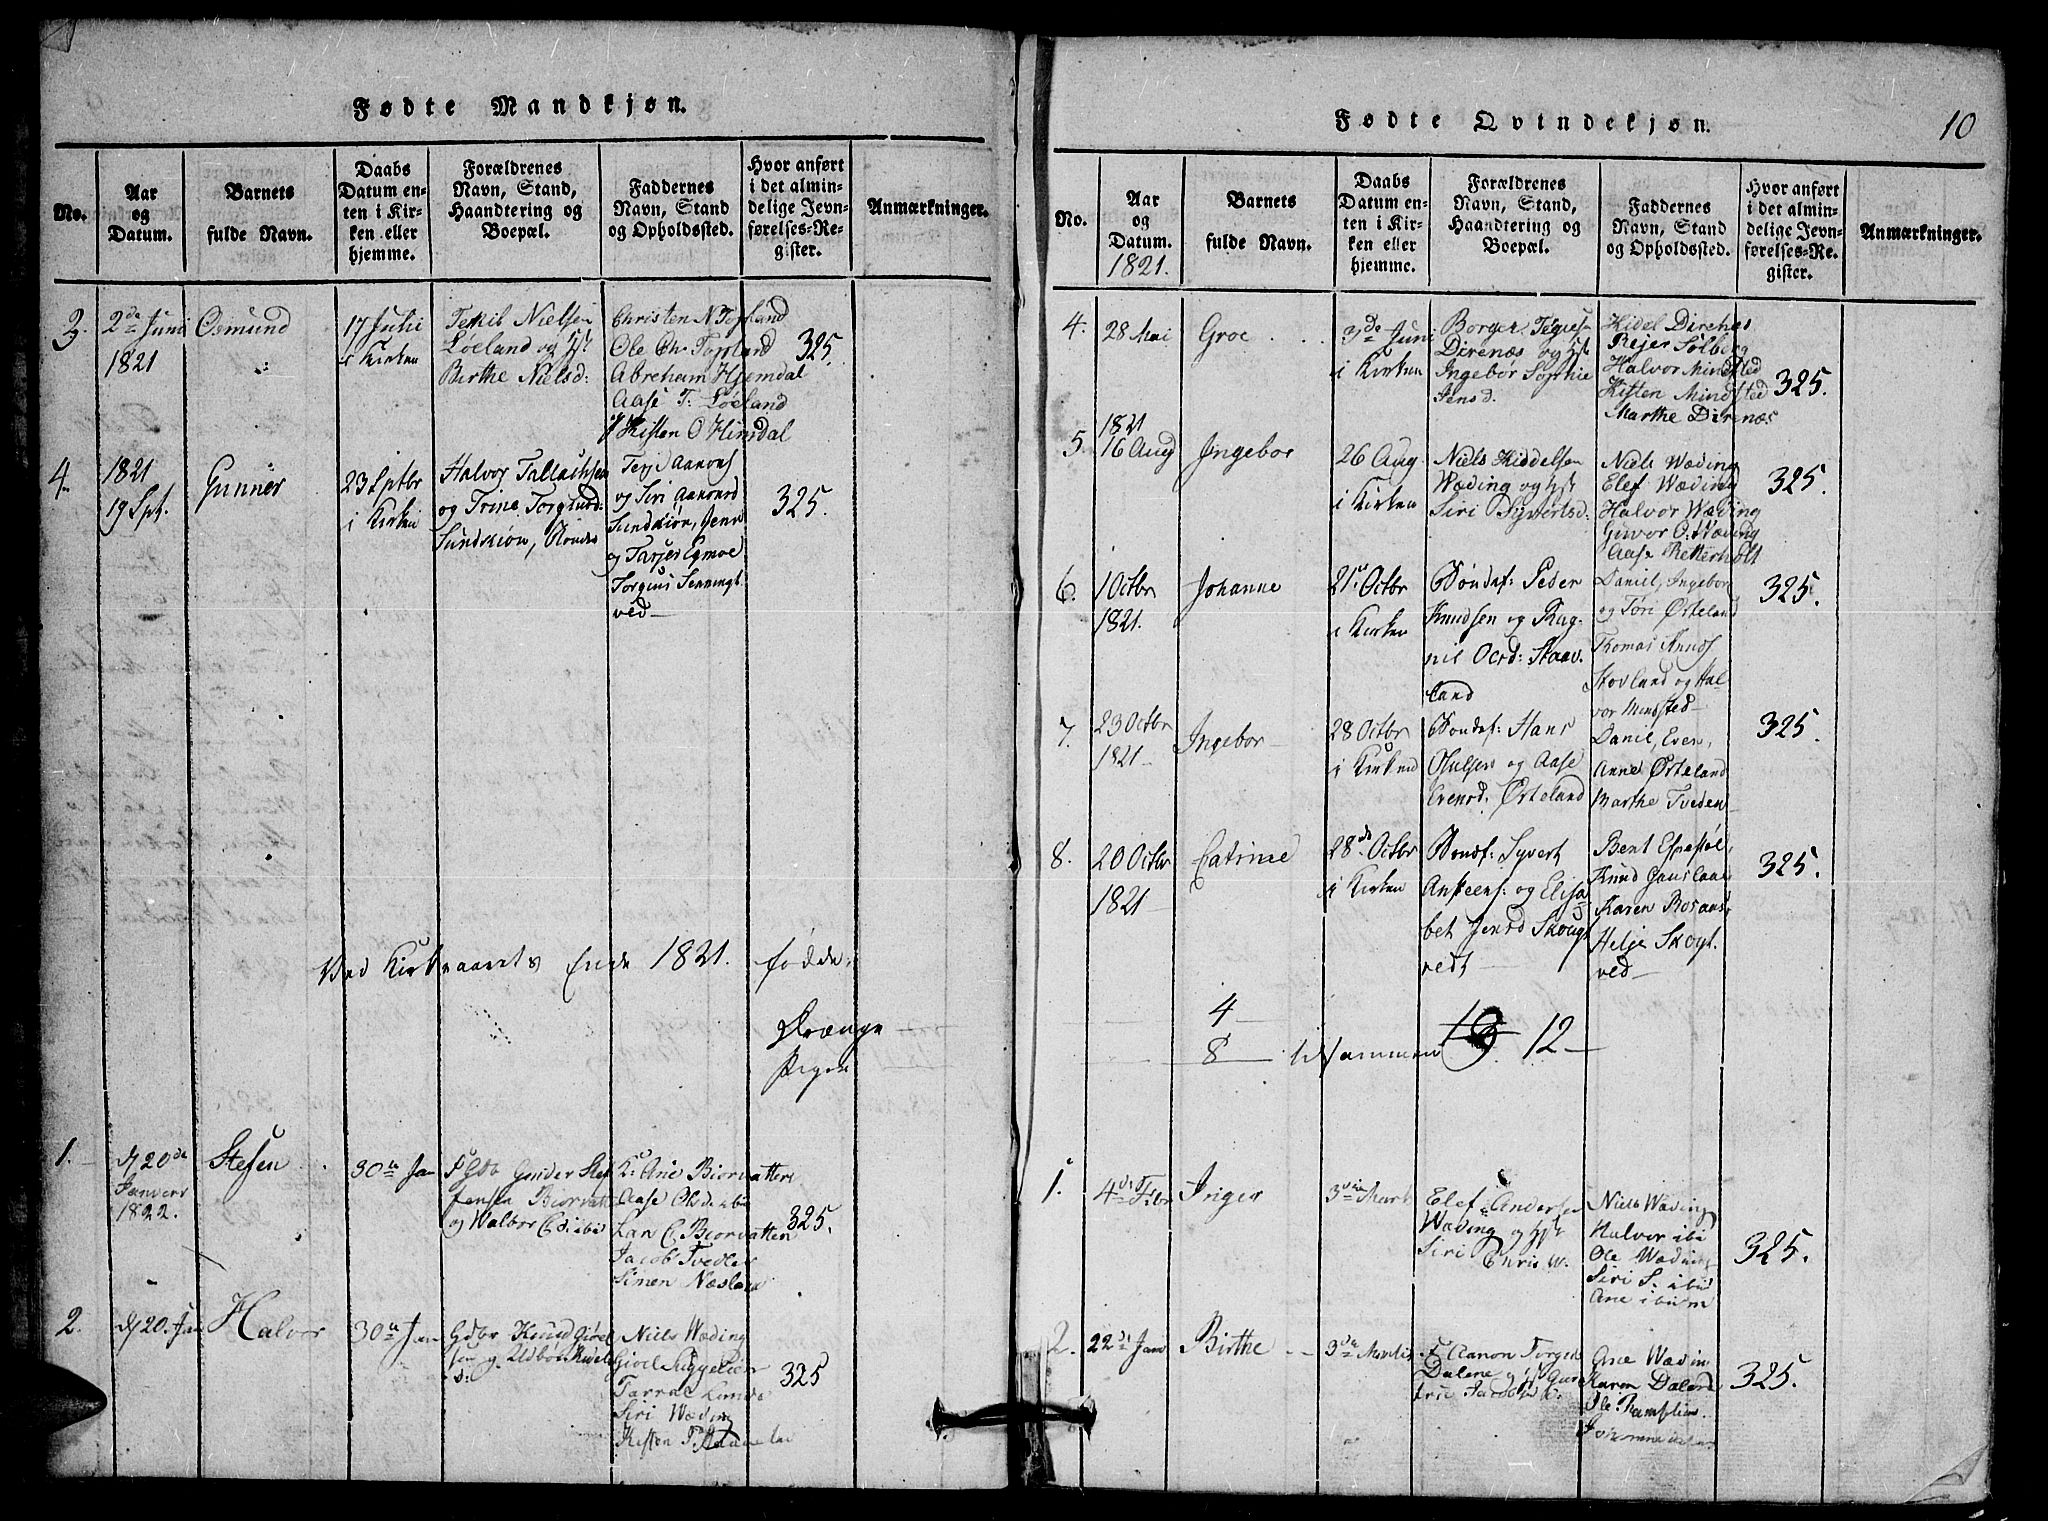 Fødte Mandkjøn.
No.
Aar
og
Datum.
Barnets
fulde Navn.
Daabs
Datum en-
ten i Kir-
ken eller
hjemme.
Forældrenes
Navn, Stand,
Haandtering og
Boepæl.
Faddernes
Navn, Stand
og Opholdssted.
Hvor anført
i det almin-
delige Jevn-
førelses-Re-
gister.
Anmærkninger.
3.
2de Juni
1821
Osmund
17 Julii
i Kirken
Terkil Nielsen
Løeland og
Birthe Nielsd:
Christen N Topland
Ole Chr Topland
Abreham Hjemdal
Aase T. Løeland
Kisten O Himdal
325.
4.
1821
19 Spt.
Gunner
23 Sptbr
i Kirken
Halvor Tallachsen
og Trine Torgiusd:
Sundskiøn,
Terji Aarons
og Siri Aaronsd
Sundskiøn, Jens
og Tarjer Egmoe
Torgius Senningt
ved
325.
Ved Kirkeaarets Ende 1821. fødde:
Drænge
Piger
1.
d 20de
Janvers
1822.
Stefen
30te Jan
Gunder Stef
fensen Biorvatt
og Walbor
Ane Biorvatten
Aase
Lars C. Biorvatten
Jacob Tvedten
Simen Næsland
325.
2.
d 20. Jan
Halvor
30te Jan
Gdbr Knud Giøel
sen og
Niels Wæding
Giøel
Tarral Lunde
Siri Wæding
Kisten
325
10
Fødte Qvindekjøn.
No.
Aar
og
Datum.
1821.
Barnets
fulde Navn.
Daabs
Datum en-
ten i Kir-
ken eller
hjemme.
Forældrenes
Navn, Stand,
Haandtering og
Boepæl.
Faddernes
Navn, Stand
og Opholdssted.
Hvor anført
i det almin-
delige Jevn-
førelses-Re-
gister.
Anmærkninger.
4.
28 Mai
Groe
3de Juni
i Kirken
Borger
Direnæs og
Ingebor Sophie
Jensd.
Kidel Direnæs
Rejer Solberg
Halvor Mindsted
Kisten Mindsted
Marthe Direnæs
325.
5.
1821
16 Aug
Ingebor
26 Aug
i Kirken
Niels Kiddelsen
Wæding og
Siri Syvertsd:
Niels Wæding
Elef Wæding
Halvor Wæding
Giuvor O. Wæding
Aase Retterholt
325.
6.
1 Octbr
1821.
Johanne
21de Octbr
i Kirken
Bondef: Peder
Knudsen og Rag-
nil Oersd: Staav-
land
Daniel, Ingebor
og Tøri Ørteland
Thomas Knuds
Stovland og Hal-
vor Mindsted
325.
7.
23 Octbr
1821
Ingebor
28 Octbr
i Kirken
Bondef: Hans
Olufsen og Aase
Evensd. Ørteland
Daniel, Even,
Anne Ørteland
Marthe Tveden
325.
8.
20 Octbr
1821
Catrine
28de Octbr
i Kirken
Bondef: Syvert
og Elisa
bet Jensd Skougt
vedt
Bent Espestøl
Knud Gauslaae
Karen Rosaas
Helje Skogt-
ved
325.
4
8
tilsammen
12
1.
4de Febr
Inger
3die Marts
Elef Andersen
Wæding og
Siri Chris W.
Niels Wæding
Halvor ibi
Ole Wæding
Siri S. ibid
Ane ibidem
325.
2.
22de Jan
Birthe
3die Martii
Aanon Torgeds
Dalene og
Ane Wæding
Karen Dalene
Ole Ramslien
325.